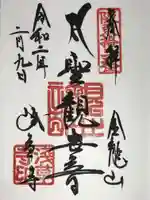 奉拝
金龍山
大聖観世音
令和二年
二月九日
浅草寺